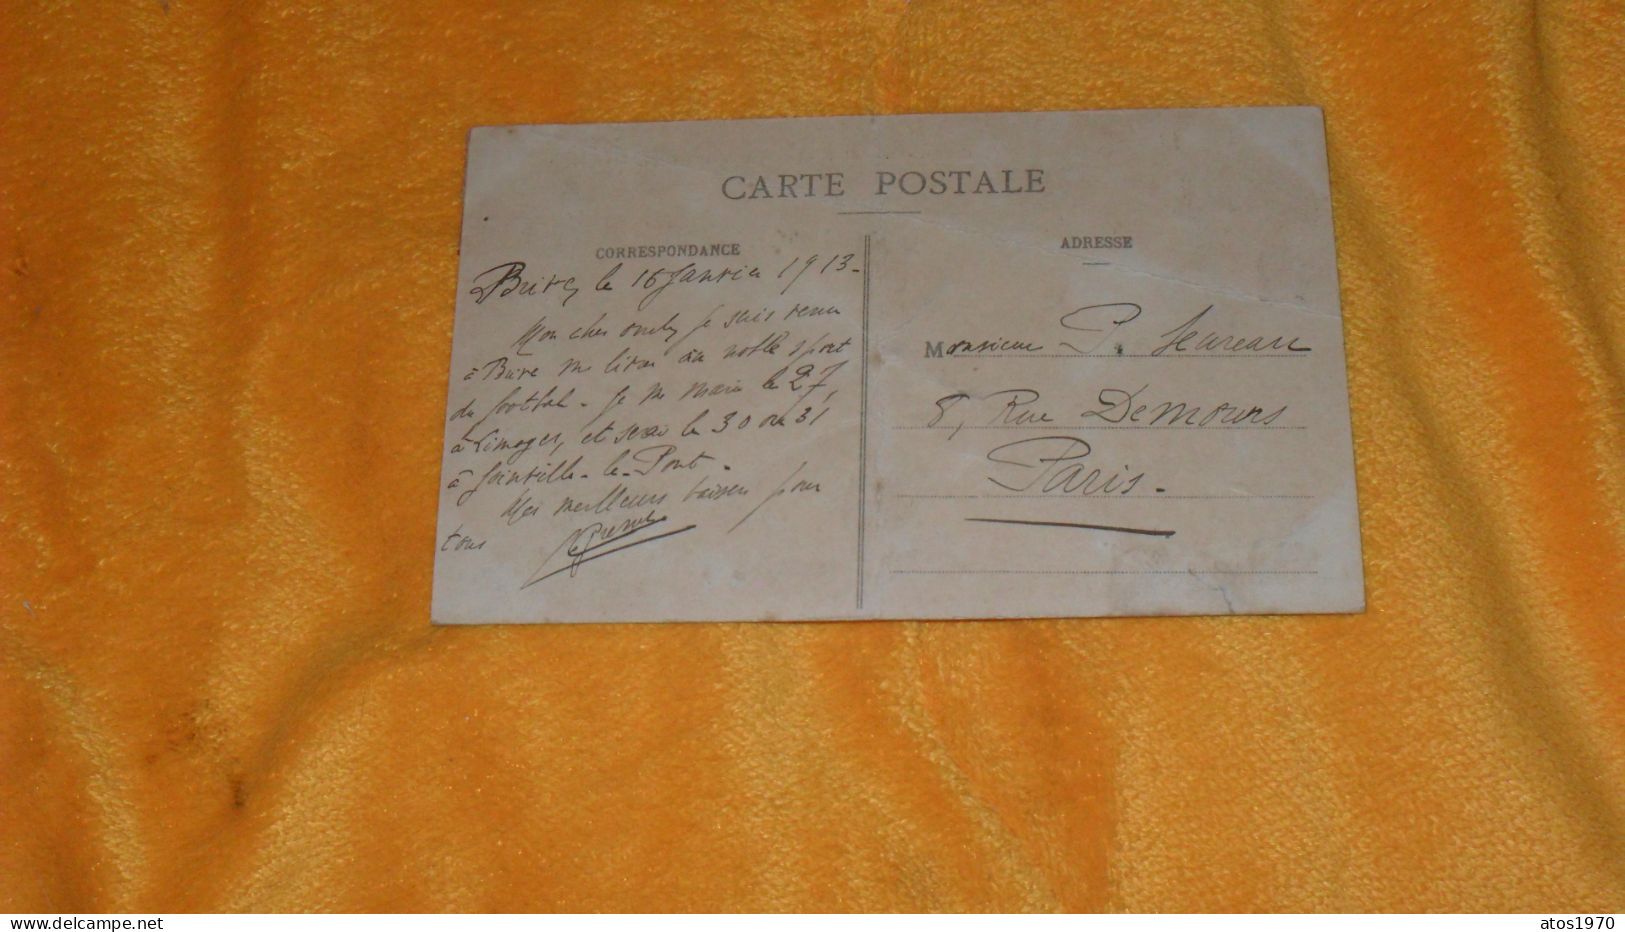 CARTE POSTALE
CORRESPONDANCE
Brive, le 16 Janvier 1913-
Mon cher oncle, je suis venu
à Brive me livrer au noble sport
du football. Je me marie le 27,
à Limoges, et serai le 30 ou 31
à Joinville-le-Pont.
Mes meilleurs baisers pour
tous
ADRESSE
Monsieur P.
8, Rue Demours
Paris.
www.delcampe.net
atos1970